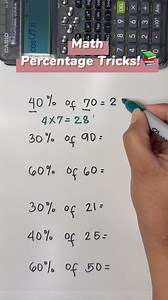 Math
Percentage Tricks!📚
40% of 70 = 2
4x7=28
30% of 90=
60% of 60=
30% of 21=
40% of 25=
60% of 50=